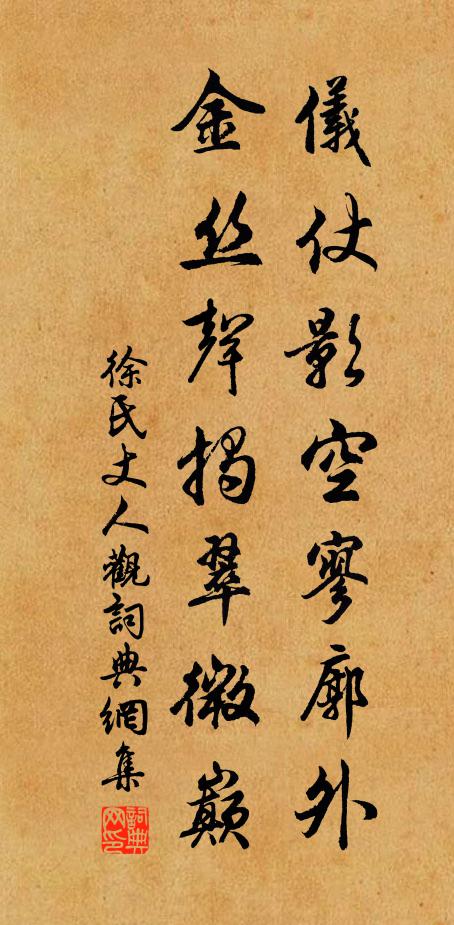 儀仗影空寥廓外
金丝聲揭翠微巔
徐氏丈人觀詞典網集
詞典網印